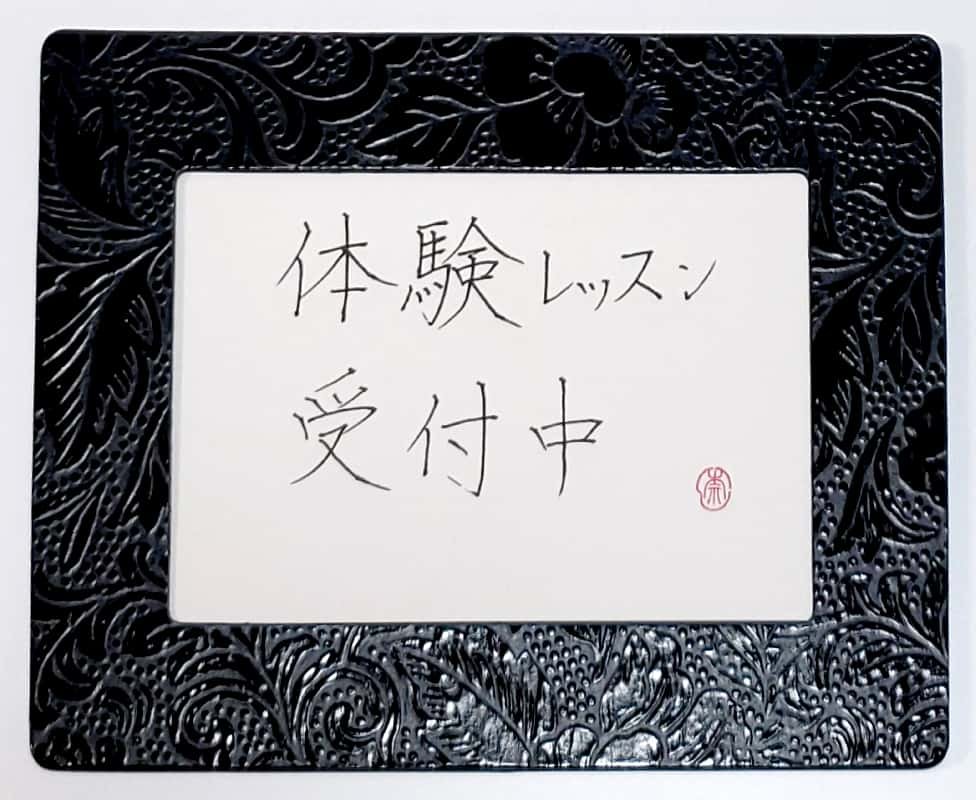 体験レッスン
受付中